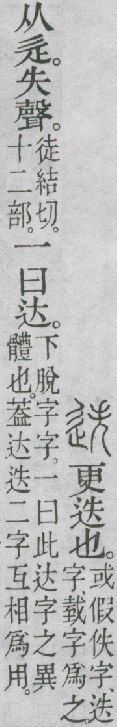 迭更迭也。或假佚字、迭字載字爲之。
从辵。失聲。徒結切。十二部。一曰达。下脫字字。一曰此达字之異體也。葢达迭二字互相爲用。